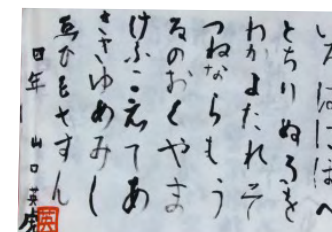 いろはにほへ
とちりぬるを
わかよたれそ
つねならむう
ゐのおくやま
けふこえてあ
さきゆめみし
ゑひもせすん
四年 山口英
英